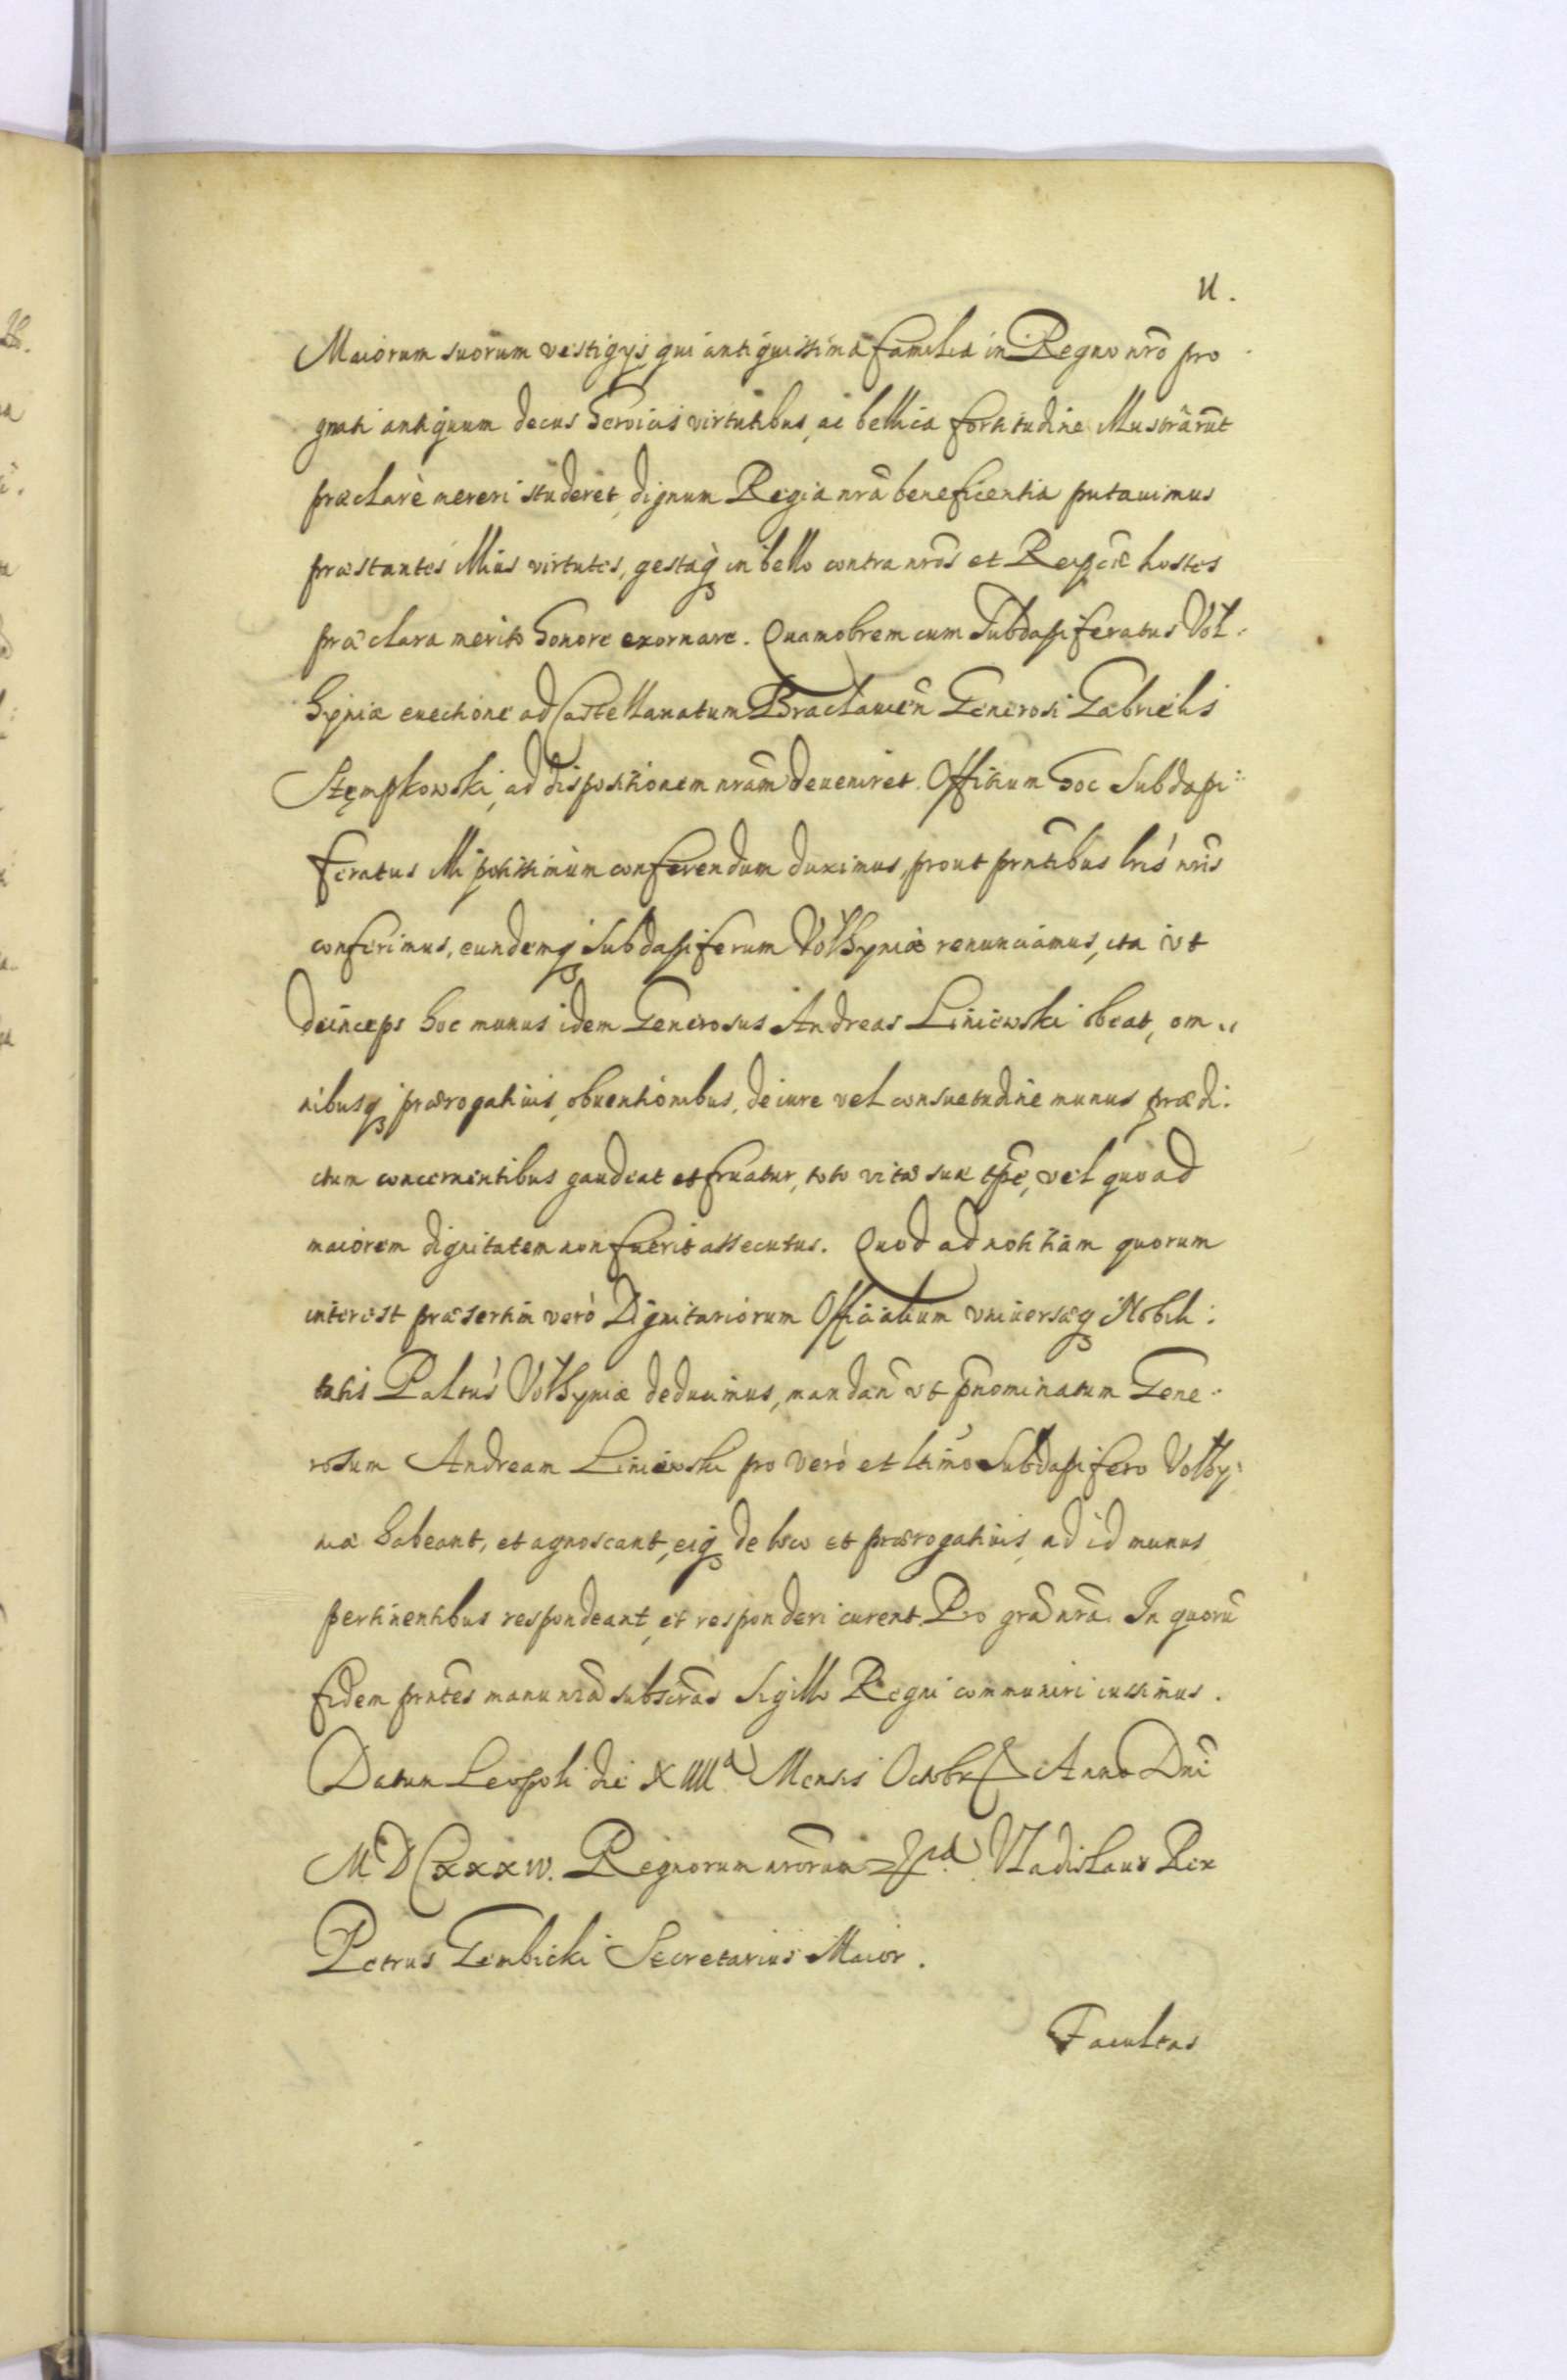 11.
Maiorum suorum vestigijs qui antiquissima familia in Regno nrõ pro
gnati antiquum decus heroicis virtutibus, ac bellica fortitudine illustrârũt
præclarè mereri studeret, dignum Regia nrã beneficentia putauimus
præstantes illius virtutes, gestaq3 in bello contra nrõs et Reipcæ hostes
præclara merito honore exornare. Quamobrem cum Subdapiferatus Vol:
hyniæ euectione ad Castellanatum Braclauieñ Generosi Gabrielis
Stęmpkowski, ad dispositionem nrãm deueniret. Offitium hoc Subdapi:
feratus illi potissimùm conferendum duximus, prout prñtibus lris nris
conferimus, eundemq3 Subdapiferum Volhyniæ renunciamus, ita vt
deinceps hoc munus idem Generosus Andreas Liniewski obeat, om„
nibusq3 prærogatiuis, obuentionibus, de iure vel consuetudine munus prædi:
ctum concernentibus gaudeat et fruatur, toto vitæ suæ tp̃e, vel quoad
maiorem dignitatem non fuerit assecutus. Quod ad notitiam quorum
interest præsertim verò Dignitariorum Officialium vniuersæq3 Nobili:
tatis Paltus Volhyniæ deducimus, mandañ vt p̃nominatum Gene:
rosum Andream Liniewski pro vero et ltimo Subdapifero Volhy:
niæ habeant, et agnoscant, eiq3 de loco et prærogatiuis, ad id munus
pertinentibus respondeant, et responderi curent. Pro grã nrã. In quorũ
fidem prñtes manu nrã subscrãs Sigillo Regni communiri iussimus.
Datum Leopoli die XIIIIa Mensis Octobr Anno Dni
MDCxxxiv. Regnorum nrõrum Vladislaus Rex
Petrus Gembicki Secretarius Maior.
Facultas